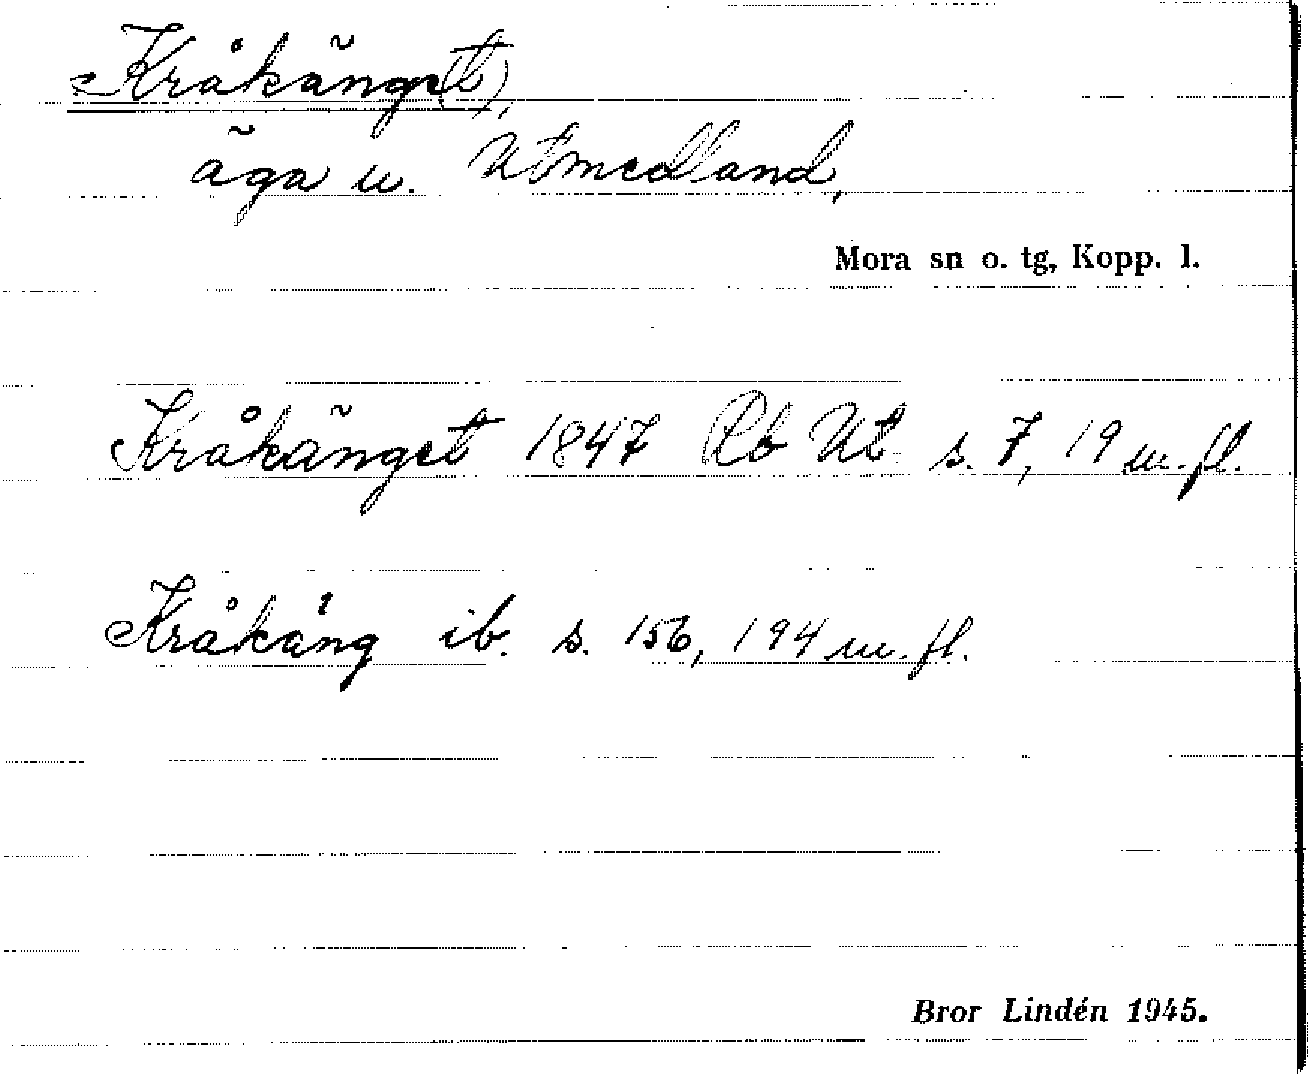 Kråkänge(t),
äga u. Utmedland,
Mora sn o. tg, Kopp. l.
Kråkänget 1847 Rb Ut s. 7, 19 m. fl.
Kråkäng ib. s. 156, 194 m. fl.
Bror Lindén 1945.